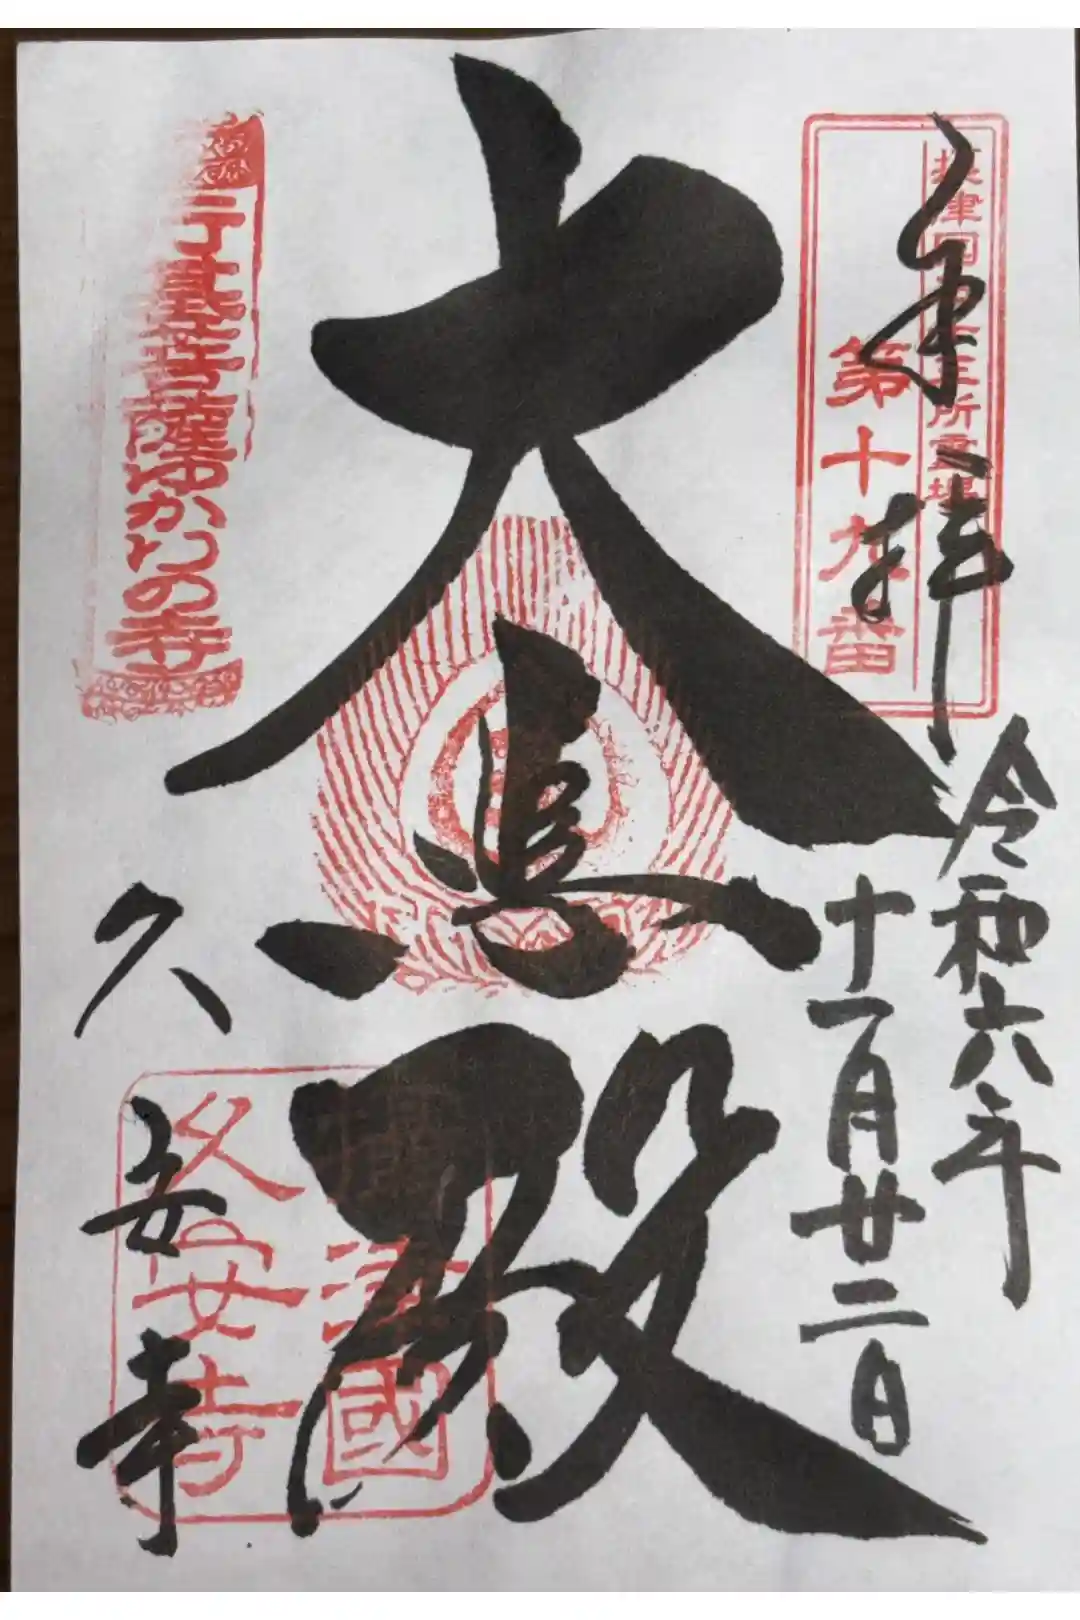 奉拝
令和六年
十一月廿二日
摂津国三十三所霊場
第十九番
大悲殿
久安寺
行基菩薩ゆかりの寺
久安寺
國